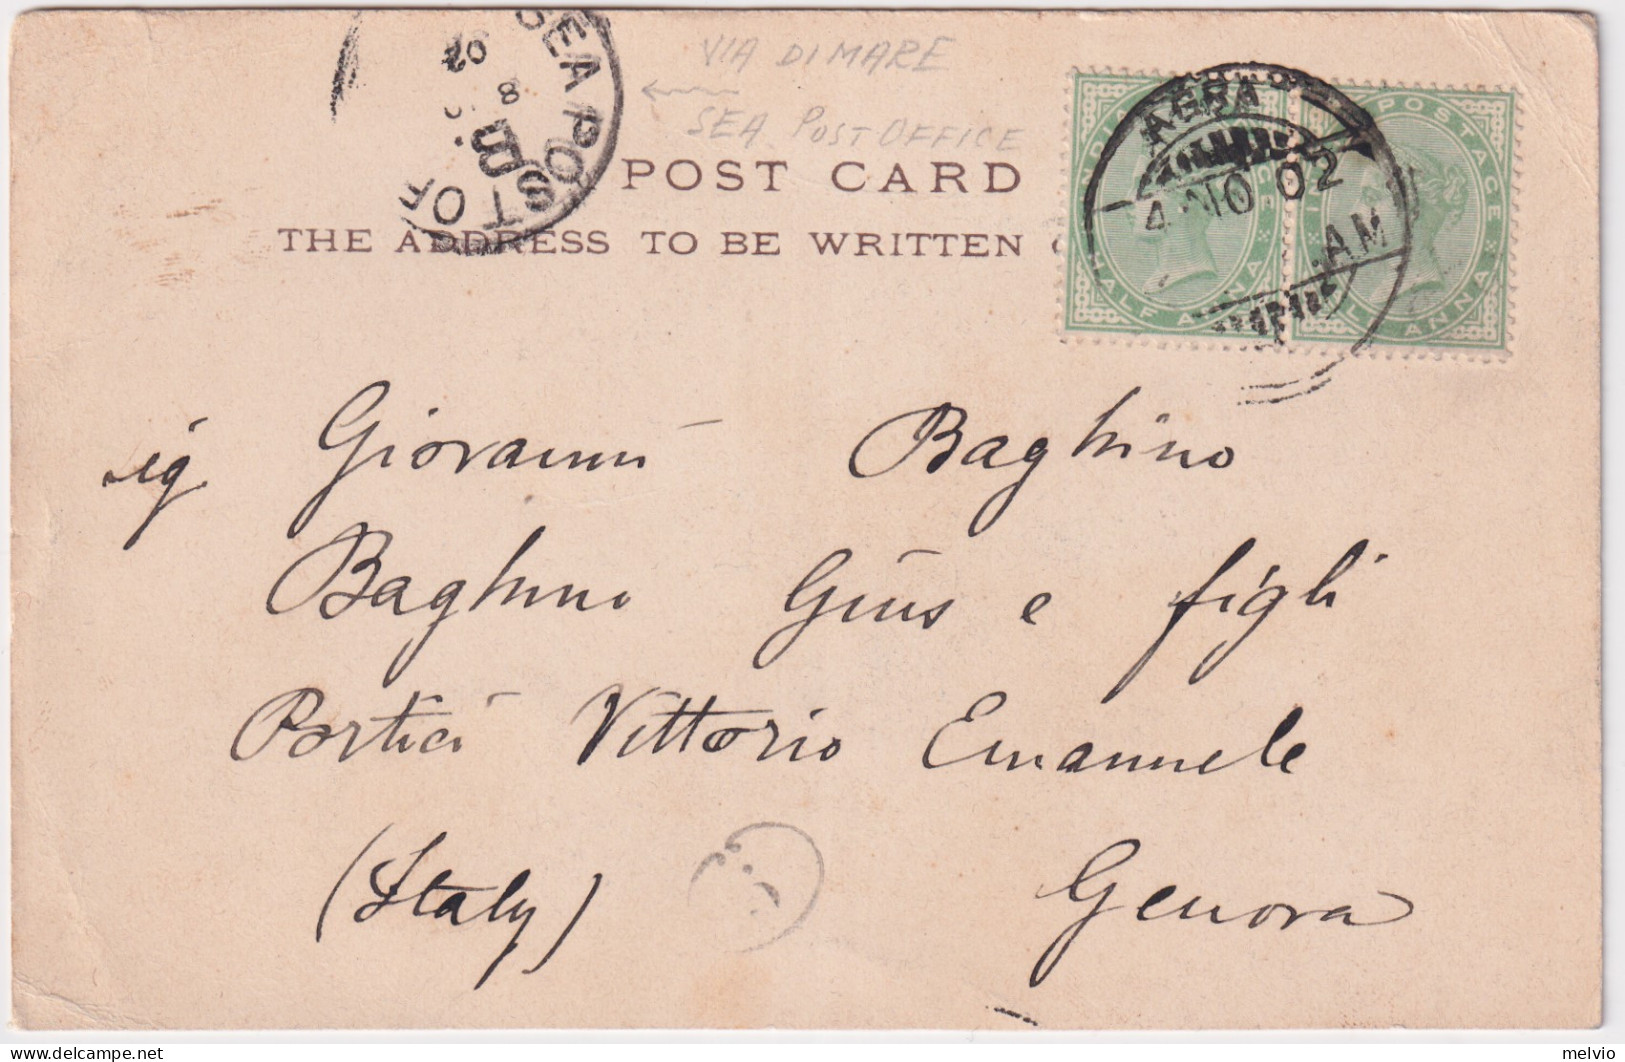 SEA POST OF
B
8
02
VIA DI MARE
SEA POST OFFICE
POST CARD
THE ADDRESS TO BE WRITTEN
INDIA POSTAGE
HALF ANNA
INDIA POSTAGE
HALF ANNA
AGRA
4 NO 02
AM
Sig Giovanni Baghino
Baghino Gius e figli
Portici Vittorio Emanuele
(Italy) Genova
melvio